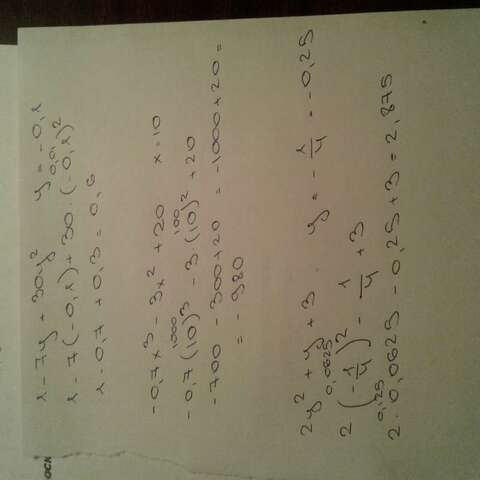 1 - 7y + 30y² y = -0,1
0,01
1 - 7(-0,1) + 30 · (-0,1)²
1 - 0,7 + 0,3 = 0,6
-0,7x³ - 3x² + 20 x = 10
1000 100
-0,7(10)³ - 3(10)² + 20
-700 - 300 + 20 = -1000 + 20 =
= -980
2y² + y + 3 y = -1/4 = -0,25
0,0625
2(-1/4)² - 1/4 + 3
0,125
2 · 0,0625 - 0,25 + 3 = 2,875